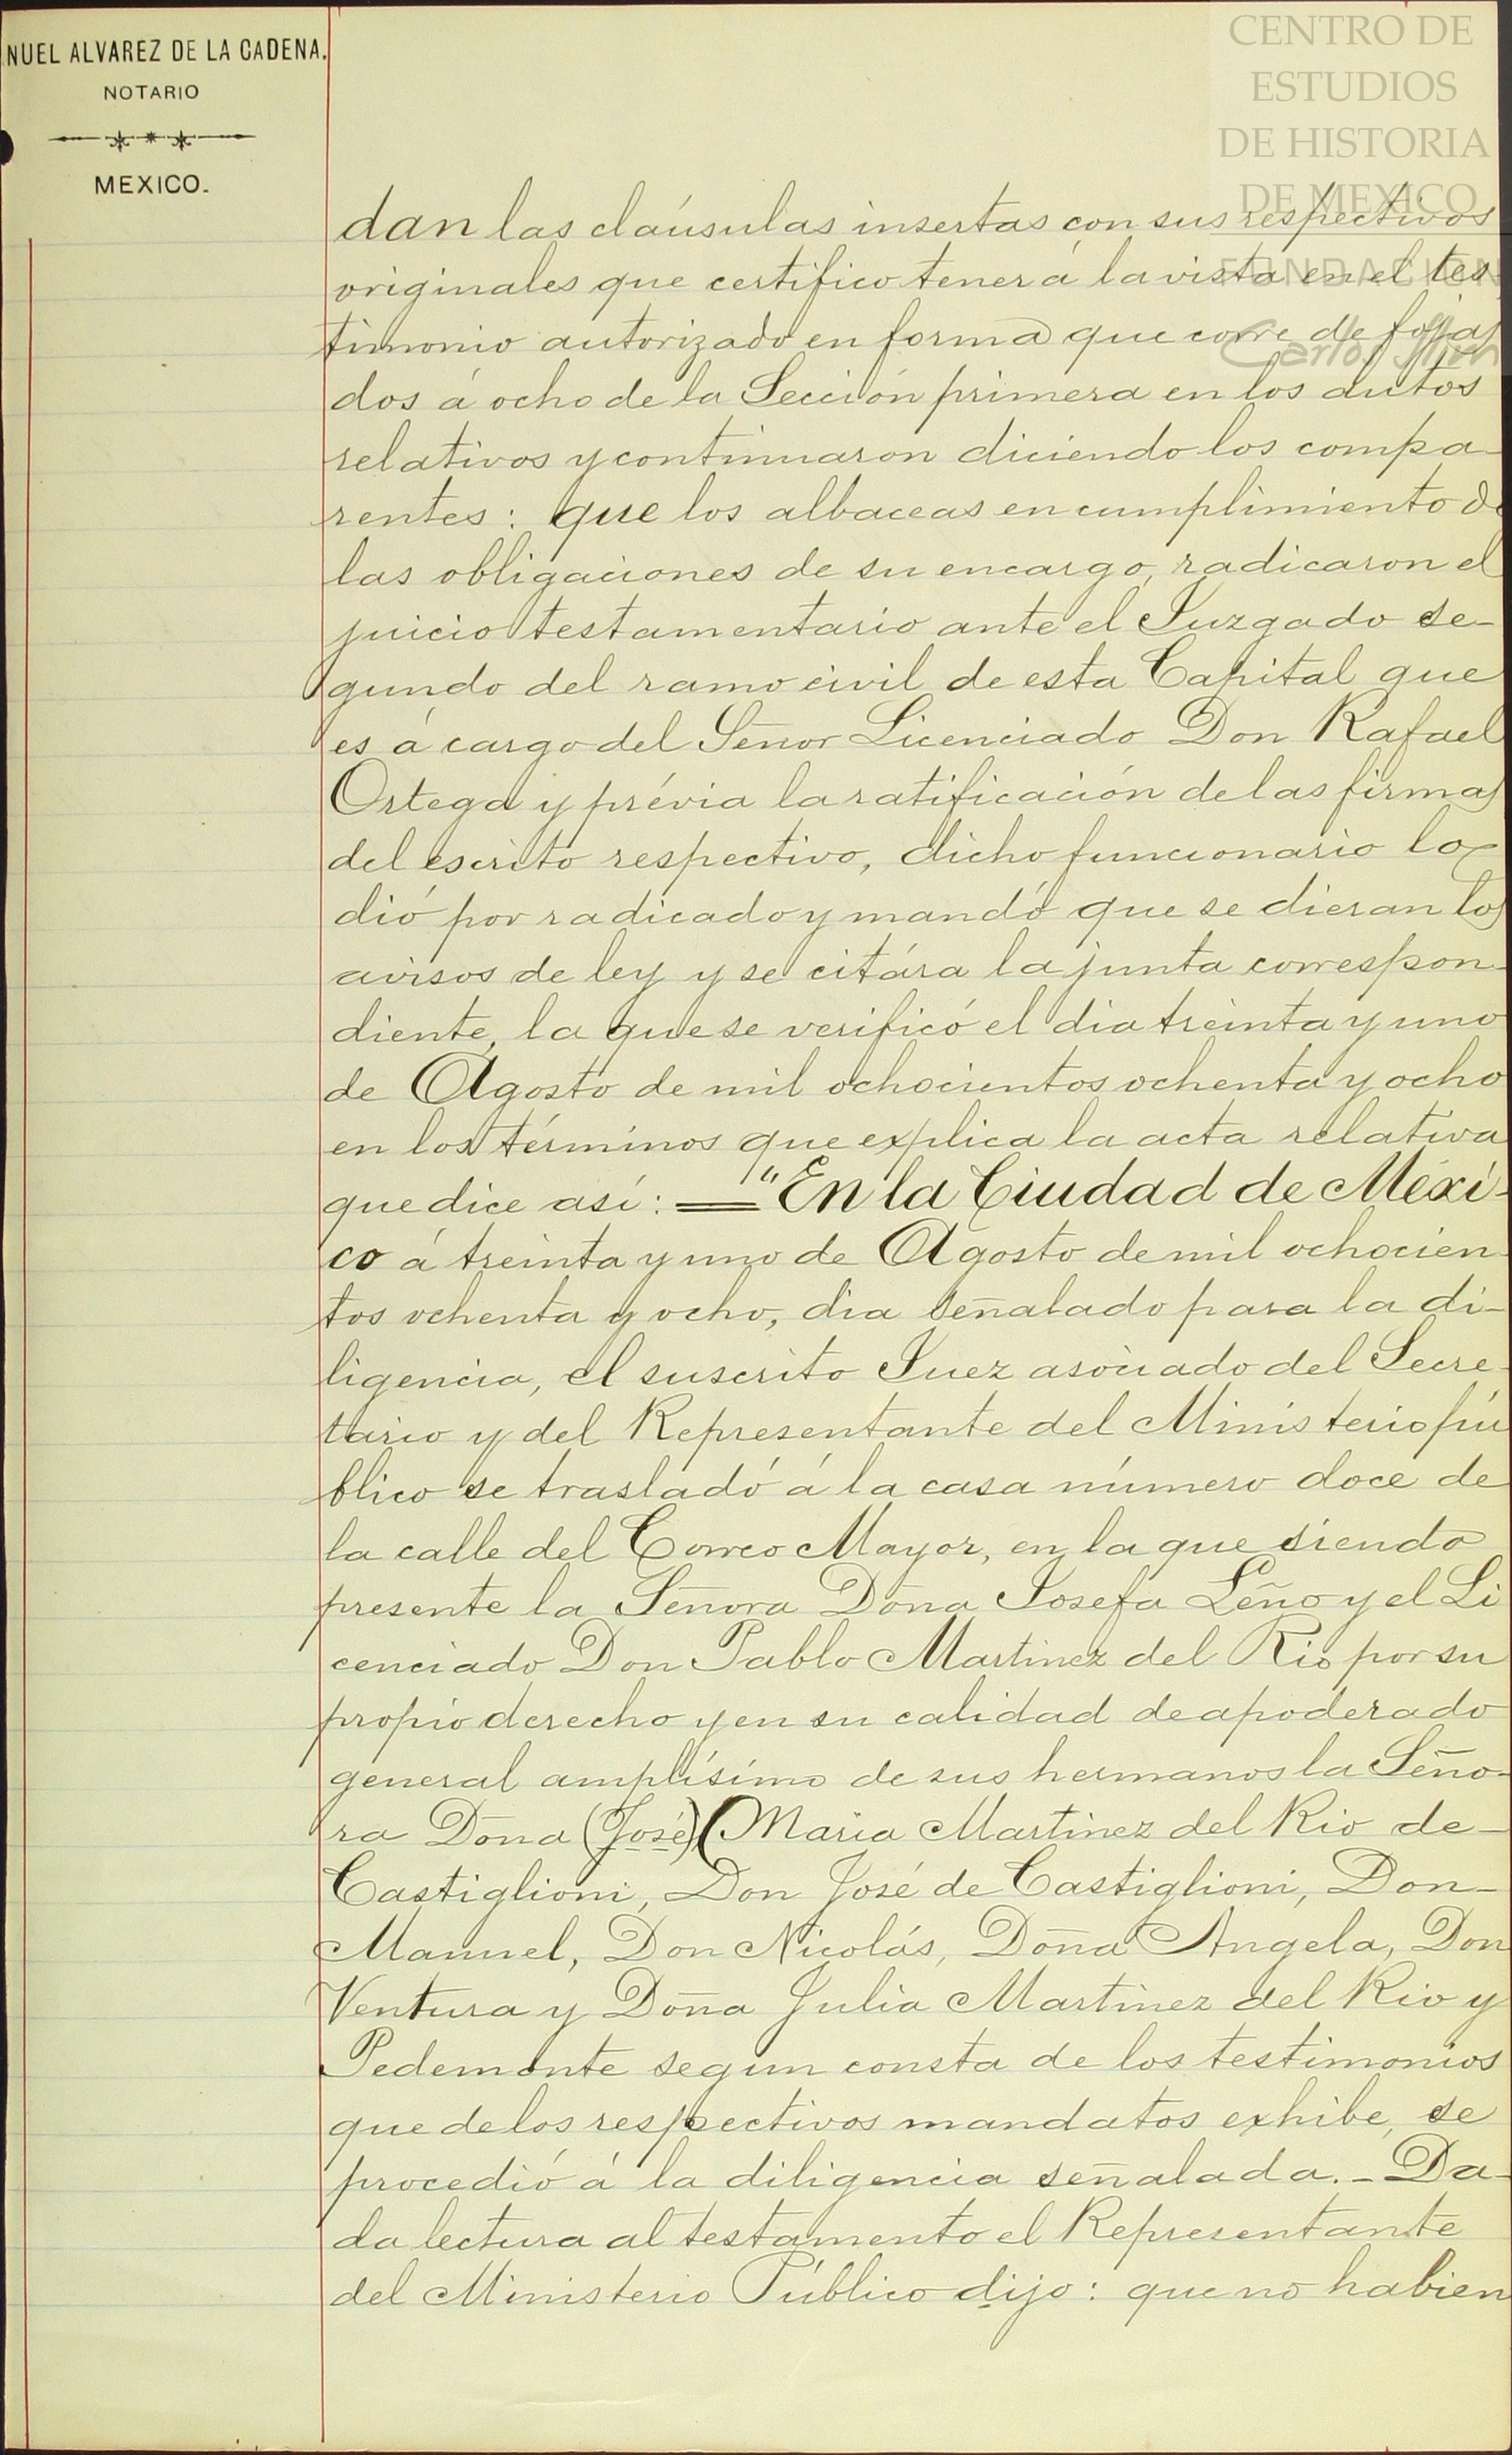 NUEL ALVAREZ DE LA CADENA.
NOTARIO
MEXICO.
CENTRO DE
ESTUDIOS
DE HISTORIA
DE MEXICO
FUNDACIÓN
Carlos Slim
dan las claúsulas insertas con sus respectivos
originales que certifico tener á la vista en el tes
timonio autorizado en forma que corre de fojas
dos á ocho de la Sección primera en los autos
relativos y continuaron diciendo los compa
rentes: que los albaceas en cumplimiento de
las obligaciones de su encargo, radicaron el
juicio testamentario ante el Juzgado se-
gundo del ramo civil de esta Capital que
es á cargo del Señor Licenciado Don Rafael
Ortega y prévia la ratificación de las firmas
del escrito respectivo, dicho funcionario lo
dió por radicado y mandó que se dieran los
avisos de ley y se citára la junta correspon-
diente, la que se verificó el dia treinta y uno
de Agosto de mil ochocientos ochenta y ocho
en los términos que explica la acta relativa
que dice asi: = "En la Ciudad de Méxi-
co á treinta y uno de Agosto de mil ochocien
tos ochenta y ocho, dia señalado para la di-
ligencia, el suscrito Juez asociado del Secre-
tario y del Representante del Ministerio pú
blico se trasladó á la casa número doce de
la calle del Correo Mayor, en la que siendo
presente la Señora Doña Josefa Leño y el Li
cenciado Don Pablo Martinez del Rio por su
propio derecho y en su calidad de apoderado
general amplísimo de sus hermanos la Seño-
ra Doña (José) (Maria Martinez del Rio de-
Castiglioni, Don José de Castiglioni, Don-
Manuel, Don Nicolás, Doña Angela, Don
Ventura y Doña Julia Martinez del Rio y
Pedemonte segun consta de los testimonios
que de los respectivos mandatos exhibe, se
procedió á la diligencia señalada.- Da-
da lectura al testamento el Representante
del Ministerio Público dijo: que no habien